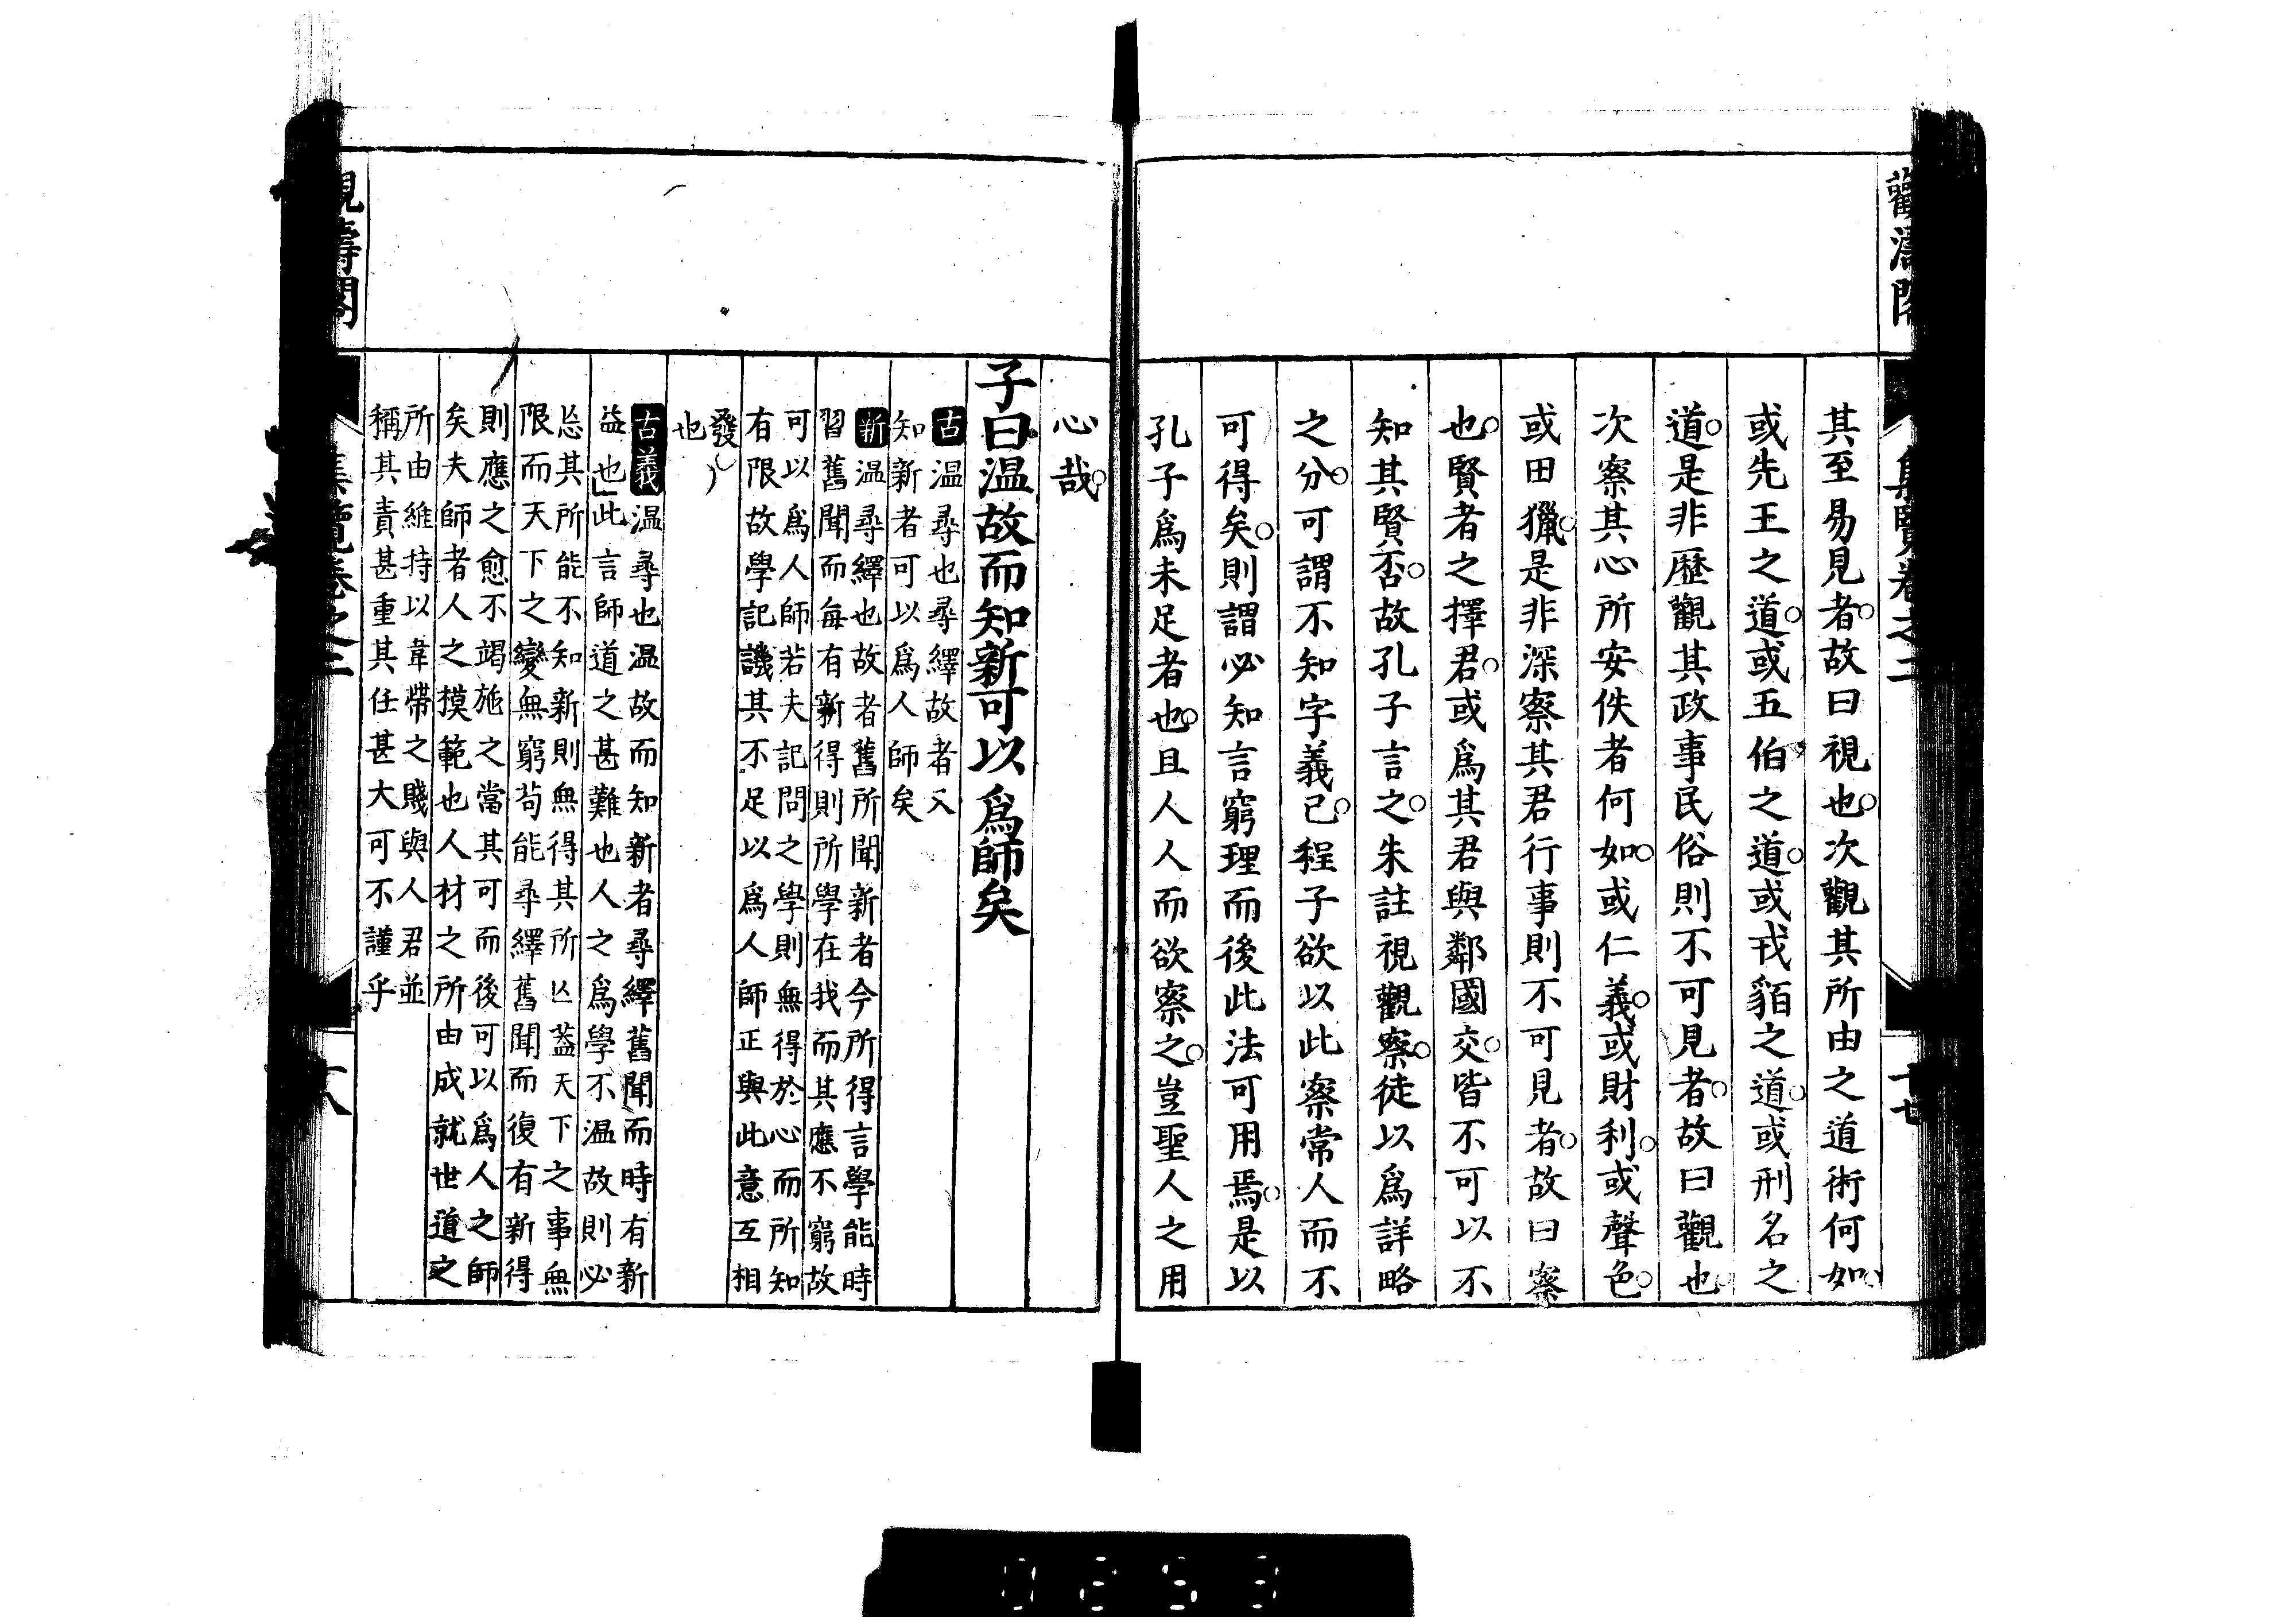 觀濤閣
其至易見者故曰視也次觀其所由之道術何如
或先王之道或五伯之道或戎貊之道或刑名之
道是非歷觀其政事民俗則不可見者故曰觀也
次察其心所安佚者何如或仁義或財利或聲色
或田獵是非深察其君行事則不可見者故曰察
也賢者之擇君或爲其君與鄰國交皆不可以不
知其賢否故孔子言之朱註視觀察徒以爲詳略
之分可謂不知字義已程子欲以此察常人而不
可得矣則謂必知言窮理而後此法可用焉是以
孔子爲未足者也且人人而欲察之豈聖人之用
心哉
子曰温故而知新可以爲師矣
古温尋也尋繹故者又
知新者可以爲人師矣
新温尋繹也故者舊所聞新者今所得言學能時
習舊聞而每有新得則所學在我而其應不窮故
可以爲人師若夫記問之學則無得於心而所知
有限故學記譏其不足以爲人師正與此意互相
發
也
古義温尋也温故而知新者尋繹舊聞而時有新
益也此言師道之甚難也人之爲學不温故則必
忘其所能不知新則無得其所亡蓋天下之事無
限而天下之變無窮苟能尋繹舊聞而復有新得
則應之愈不竭施之當其可而後可以爲人之師
矣夫師者人之模範也人材之所由成就世道之
所由維持以韋帶之賤與人君並
稱其責甚重其任甚大可不謹乎
集覽卷之二